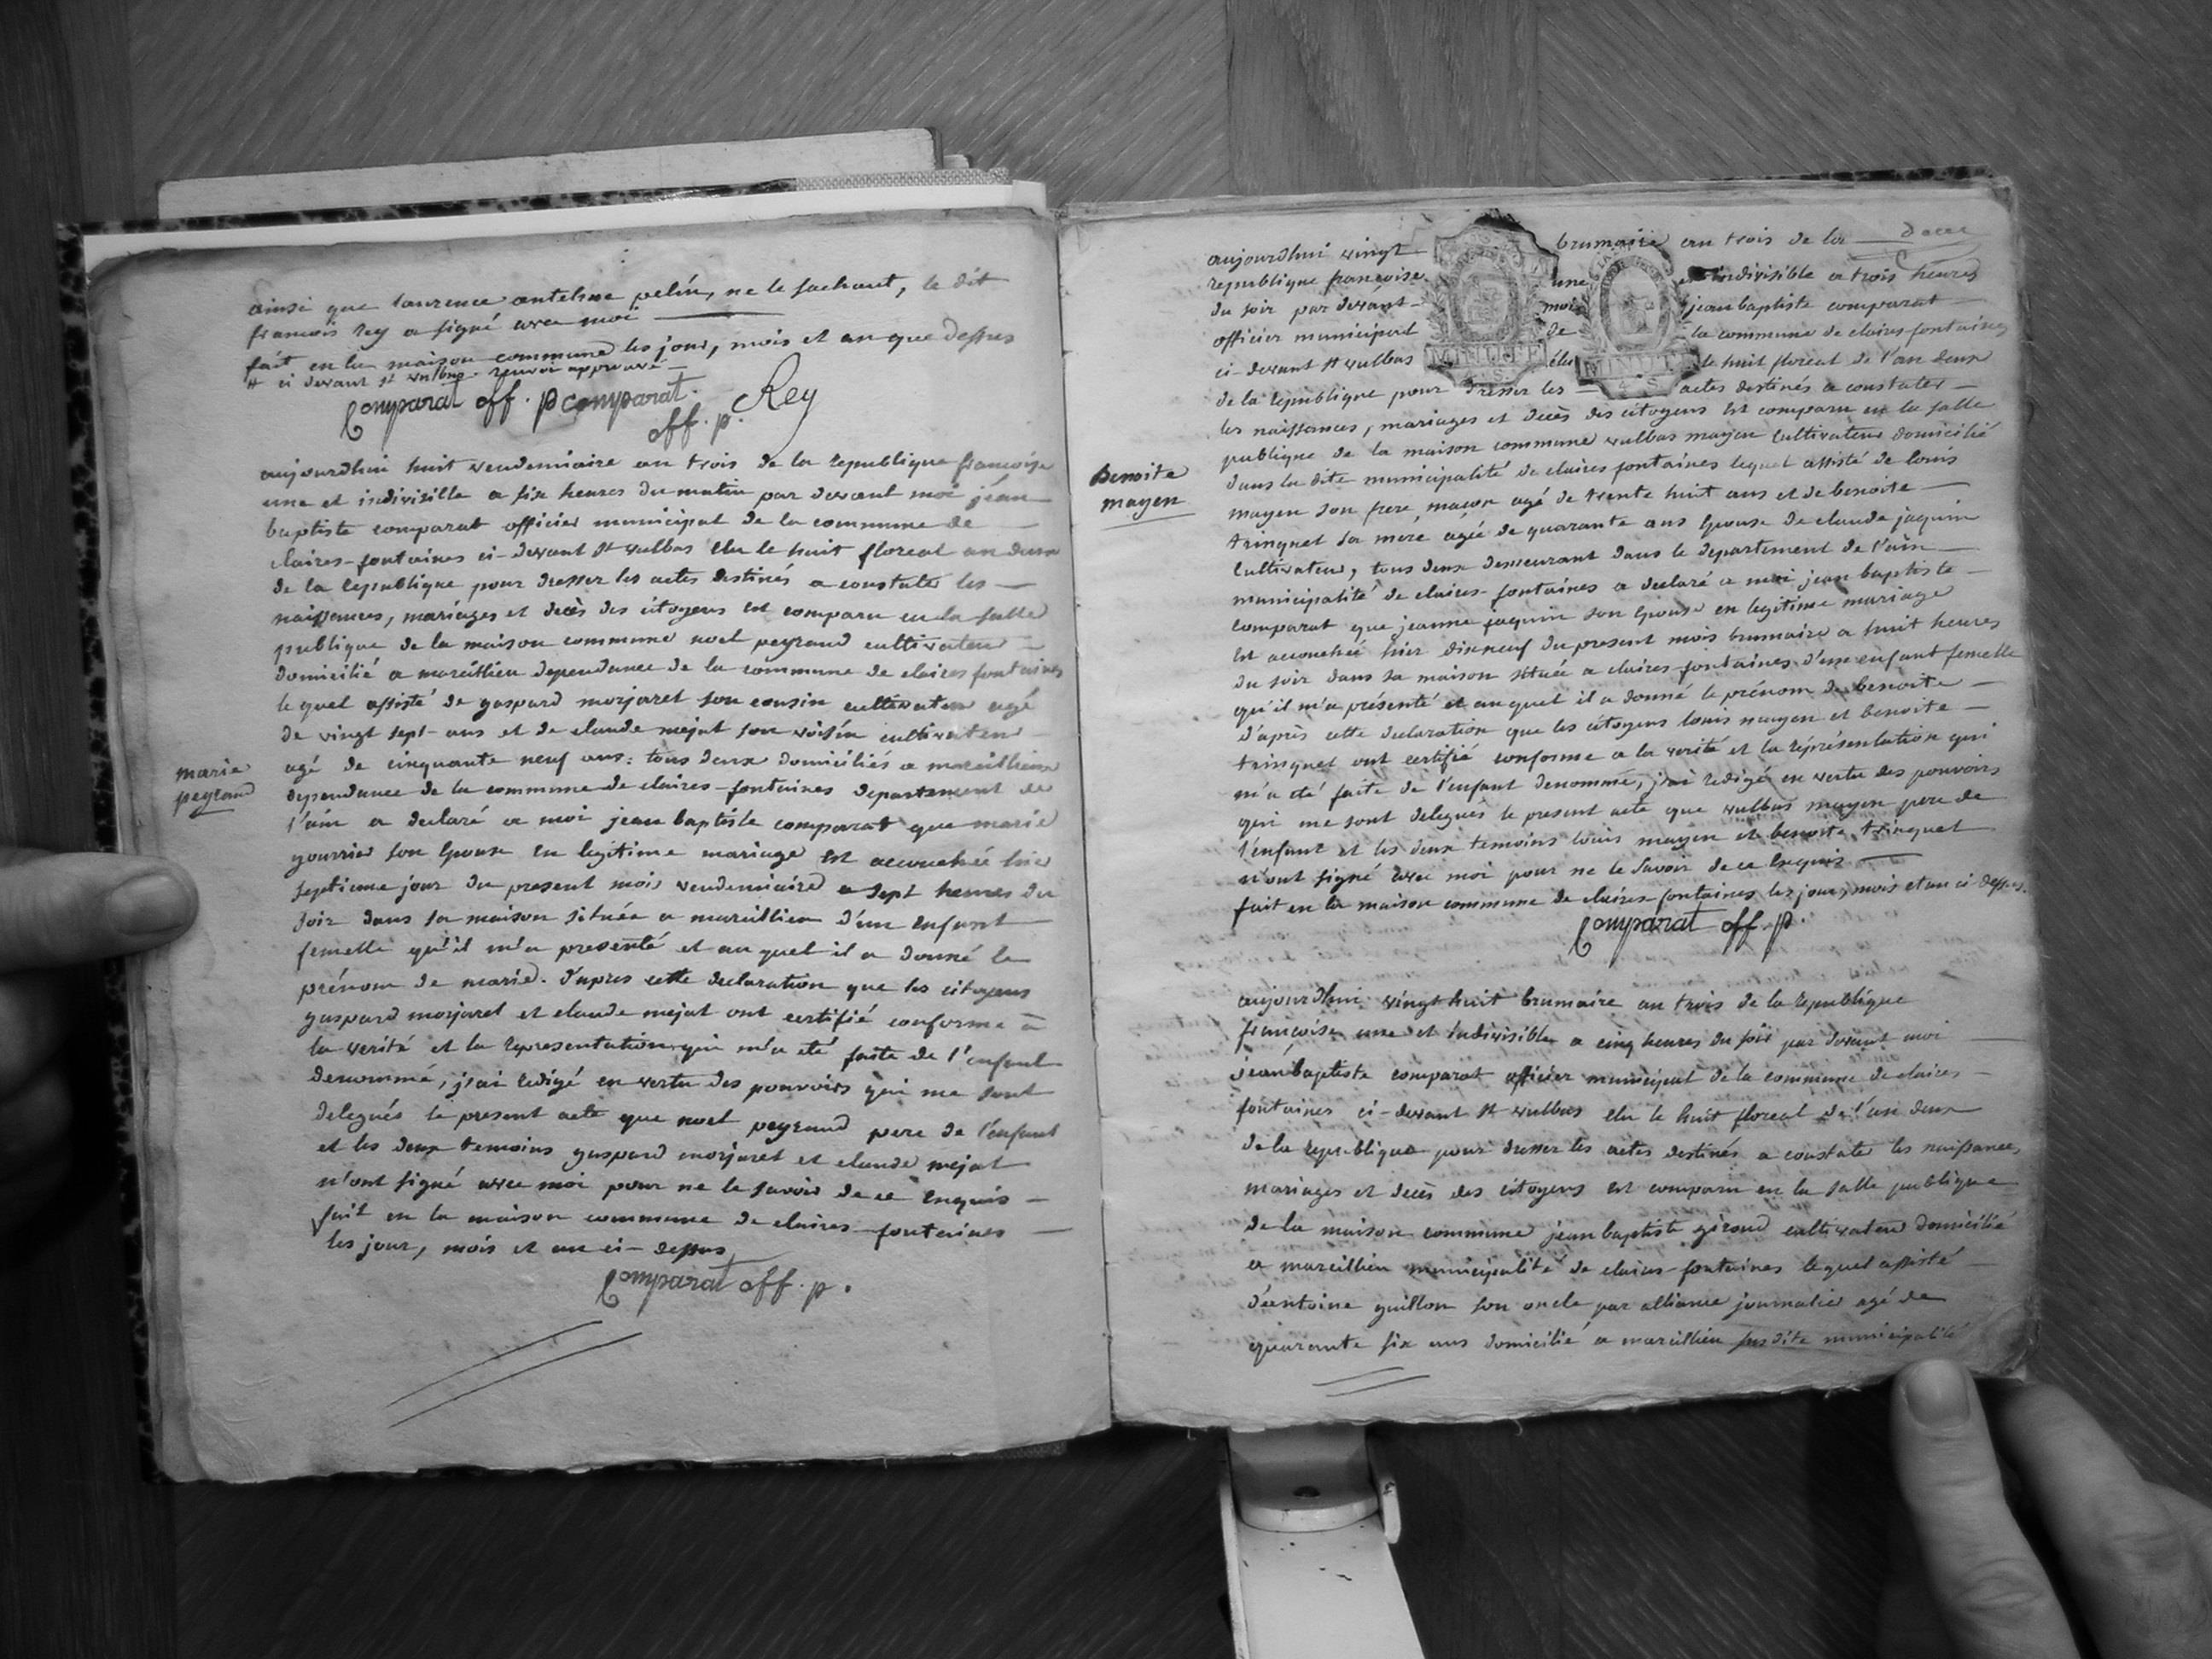 ainsi que laurence antelme pelin, ne le sachant, le dit
francois rey a signé avec moi
fait en la maison commune les jour, mois et an que dessus
# ci devant st vulbas. renvoi approuvé
Comparat off. p Comparat off. p. Rey
aujourdhui huit vendemiaire an trois de la republique françoise
une et indivisible a six heures du matin par devant moi jéan
baptiste comparat officier municipal de la commune de
claires-fontaines ci-devant st vulbas élu le huit floreal an deux
de la republique pour dresser les actes destinés a constater les
naissances, mariages et decès des citoyens est comparu en la salle
publique de la maison commune noel peyraud cultivateur
domicilié a marcillieu dependance de la commune de claires fontaines
lequel assisté de gaspard morjaret son cousin cultivateur agé
de vingt sept ans et de claude mejat son voisin cultivateur
agé de cinquante neuf ans: tous deux domiciliés a marcillieux
dependance de la commune de claires-fontaines departement de
marie
peyraud
l'ain a declaré a moi jean baptiste comparat que marie
gourrier son epouse en legitime mariage est accouchée hier
septieme jour du present mois vendemiaire a sept heures du
soir dans sa maison située a marcillieu d'un enfant
femelle qu'il m'a presenté et au quel il a donné le
prénom de marie. d'apres cette declaration que les citoyens
gaspard morjaret et claude mejat ont certifié conforme à
la verité et la representation qui m'a eté faite de l'enfant
denommé, j'ai redigé en vertu des pouvoirs qui me sont
delegués le present acte que noel peyraud pere de l'enfant
et les deux temoins gaspard morjaret et claude mejat
n'ont signé avec moi pour ne le savoir de ce enquis
fait en la maison commune de claires-fontaines
les jour, mois et an ci-dessus
Comparat off. p.
aujourdhui vingt brumaire an trois de la
republique françoise une et indivisible a trois heures
du soir par devant moi jean baptiste comparat
officier municipal de la commune de claires-fontaines
ci-devant st vulbas élu le huit floreal de l'an deux
MINUTE MINUTE
4 S 4 S
de la republique pour dresser les actes destinés a constater
les naissances, mariages et decès des citoyens est comparu en la salle
publique de la maison commune vulbas mayen cultivateur domicilié
benoite
mayen
dans la dite municipalité de claires fontaines lequel assisté de louis
mayen son frere, maçon agé de trente huit ans et de benoite
trinquet sa mere agée de quarante ans epouse de claude jaquin
cultivateur, tous deux demeurant dans le departement de l'ain
municipalité de claires-fontaines a declaré a moi jean baptiste
comparat que jeanne jaquin son epouse en legitime mariage
est accouchée hier dixneuf du present mois brumaire a huit heures
du soir dans sa maison située a claires-fontaines d'un enfant femelle
qu'il m'a présenté et auquel il a donné le prénom de benoite
d'après cette declaration que les citoyens louis mayen et benoite
trinquet ont certifié conforme a la verité et la représentation qui
m'a été faite de l'enfant denommé, j'ai redigé en vertu des pouvoirs
qui me sont delegués le present acte que vulbas mayen pere de
l'enfant et les deux temoins louis mayen et benoite trinquet
n'ont signé avec moi pour ne le savoir de ce enquis
fait en la maison commune de claires-fontaines les jour, mois et an ci-dessus.
Comparat off. p.
aujourdhui vingt huit brumaire an trois de la republique
françoise une et indivisible a cinq heures du soir par devant moi
jean baptiste comparat officier municipal de la commune de claires
fontaines ci-devant st vulbas elu le huit floreal de l'an deux
de la republique pour dresser les actes destinés a constater les naissances,
mariages et decès des citoyens est comparu en la salle publique
de la maison commune jean baptiste géroud cultivateur domicilié
a marcillieu municipalité de claires-fontaines lequel assisté
d'entoine guillon son oncle par alliance journalier agé de
quarante six ans domicilié a marcillieu susdite municipalité